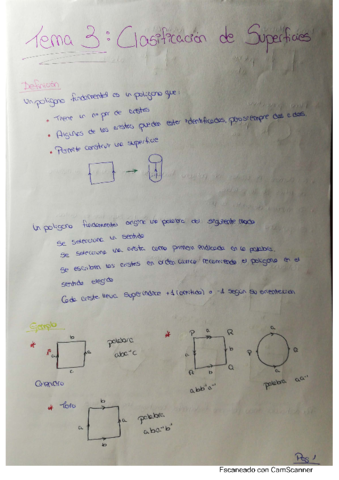 Tema 3: Clasificación de Superficies
Definición
Un polígono fundamental es un polígono que:
• Tiene un nº par de aristas
• Algunas de las aristas pueden estar identificadas, pero siempre dos a dos
• Permite construir una superficie
Un polígono fundamental origina una palabra del siguiente modo
Se selecciona un sentido
Se selecciona una arista como primera indicada en la palabra
Se escriben las aristas en orden recorriendo el polígono en el
sentido elegido
Cada arista lleva superíndice +1 o -1 según su orientación
Ejemplo
b
a
c
palabra
Cilindro
P
a
R
b
Q
P
a
Q
palabra
Toro
b
a
a
b
palabra
Pág 1
Escaneado con CamScanner